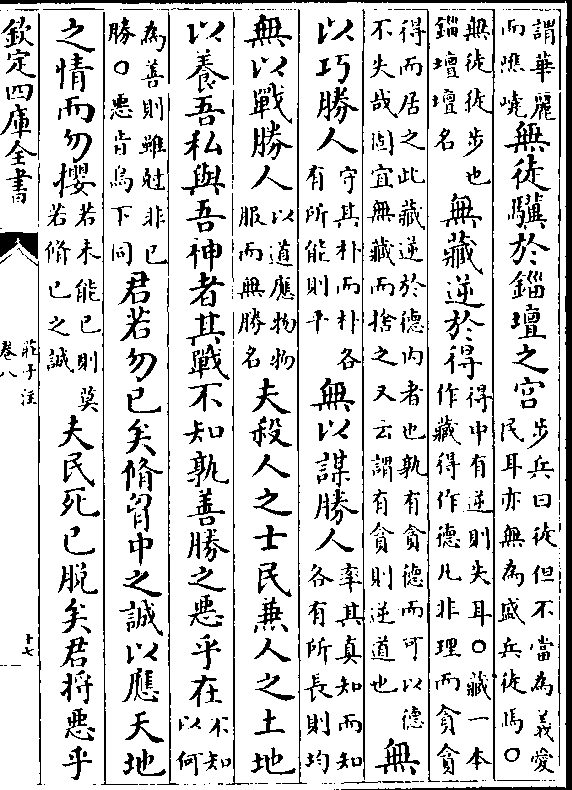 謂華麗而譙嶢無徒驥於錙壇之宫步兵曰徒但不當為義愛民耳亦無為盛兵徒馬○
無徒徒步也錙壇壇名無藏逆於得得中有逆則失耳○藏一本作藏得作德凡非理而貪貪
得而居之此藏逆於德内者也孰有貪德而可以德不失哉固宜無藏而捨之又云謂有貪則逆道也無
以巧勝人守其朴而朴各有所能則平無以謀勝人率其真知而知各有所長則均
無以戰勝人以道應物物服而無勝名夫殺人之士民兼人之土地
以養吾私與吾神者其戰不知孰善勝之惡乎在不知以何
為善則雖尅非已勝○惡音烏下同君若勿已矣脩胷中之誠以應天地
之情而勿攖若未能已則莫若脩已之誠夫民死已脱矣君將惡乎
欽定四庫全書
莊子注
卷八
十七